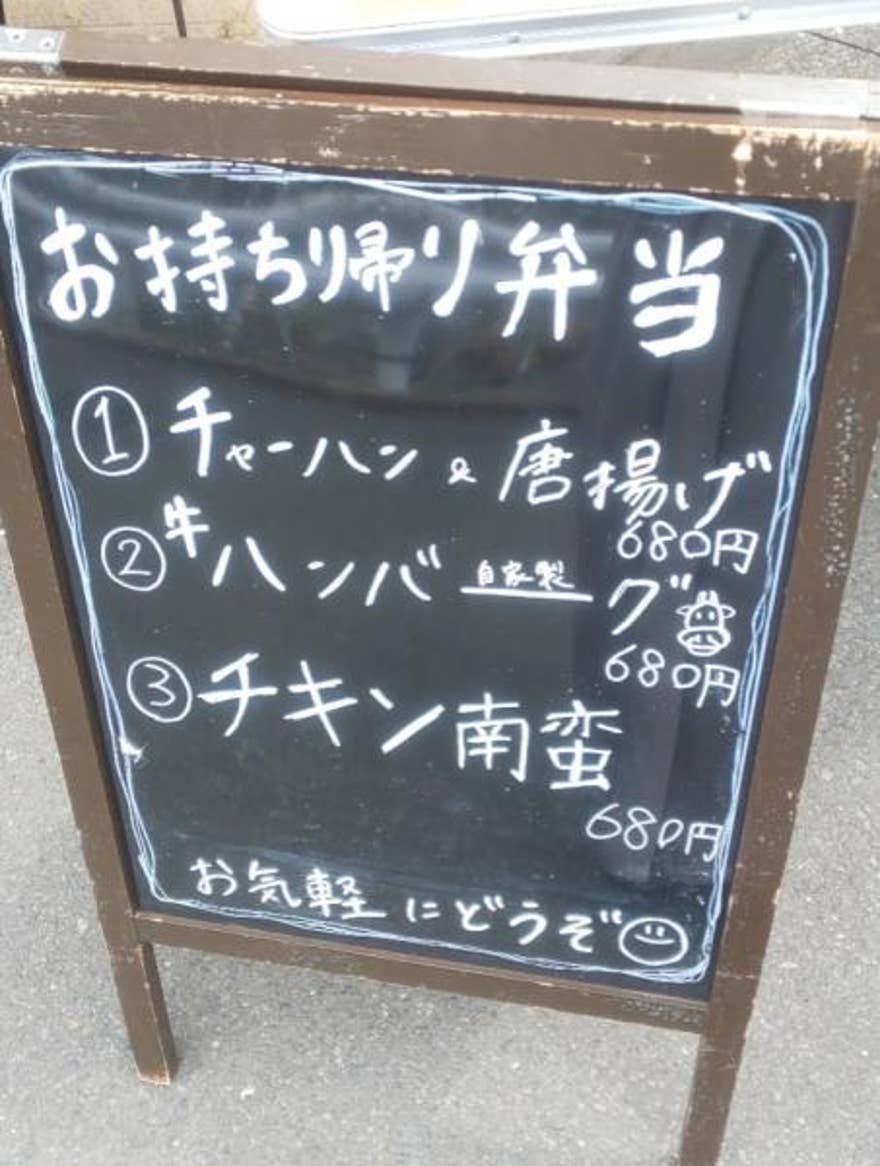 お持ち帰り弁当
①チャーハン&唐揚げ
680円
②牛ハンバーグ
自家製
680円
③チキン南蛮
680円
お気軽にどうぞ